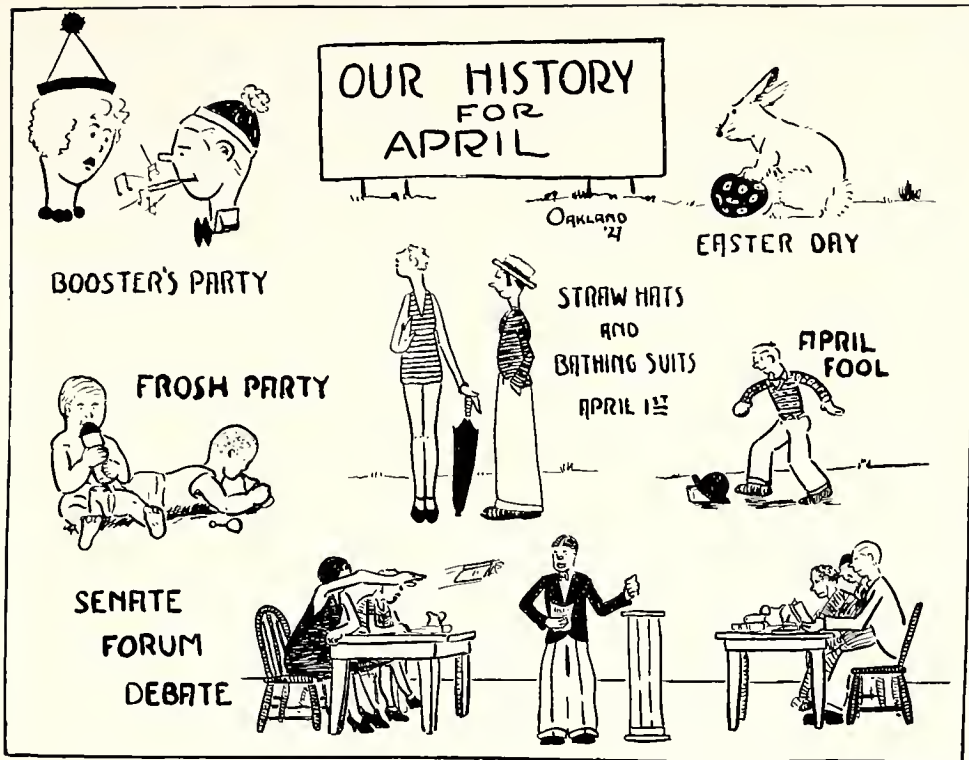 OUR HISTORY
FOR
APRIL
OAKLAND
'27
BOOSTER'S PARTY
EASTER DAY
STRAW HATS
AND
BATHING SUITS
APRIL 1ST
APRIL
FOOL
FROSH PARTY
SENATE
FORUM
DEBATE